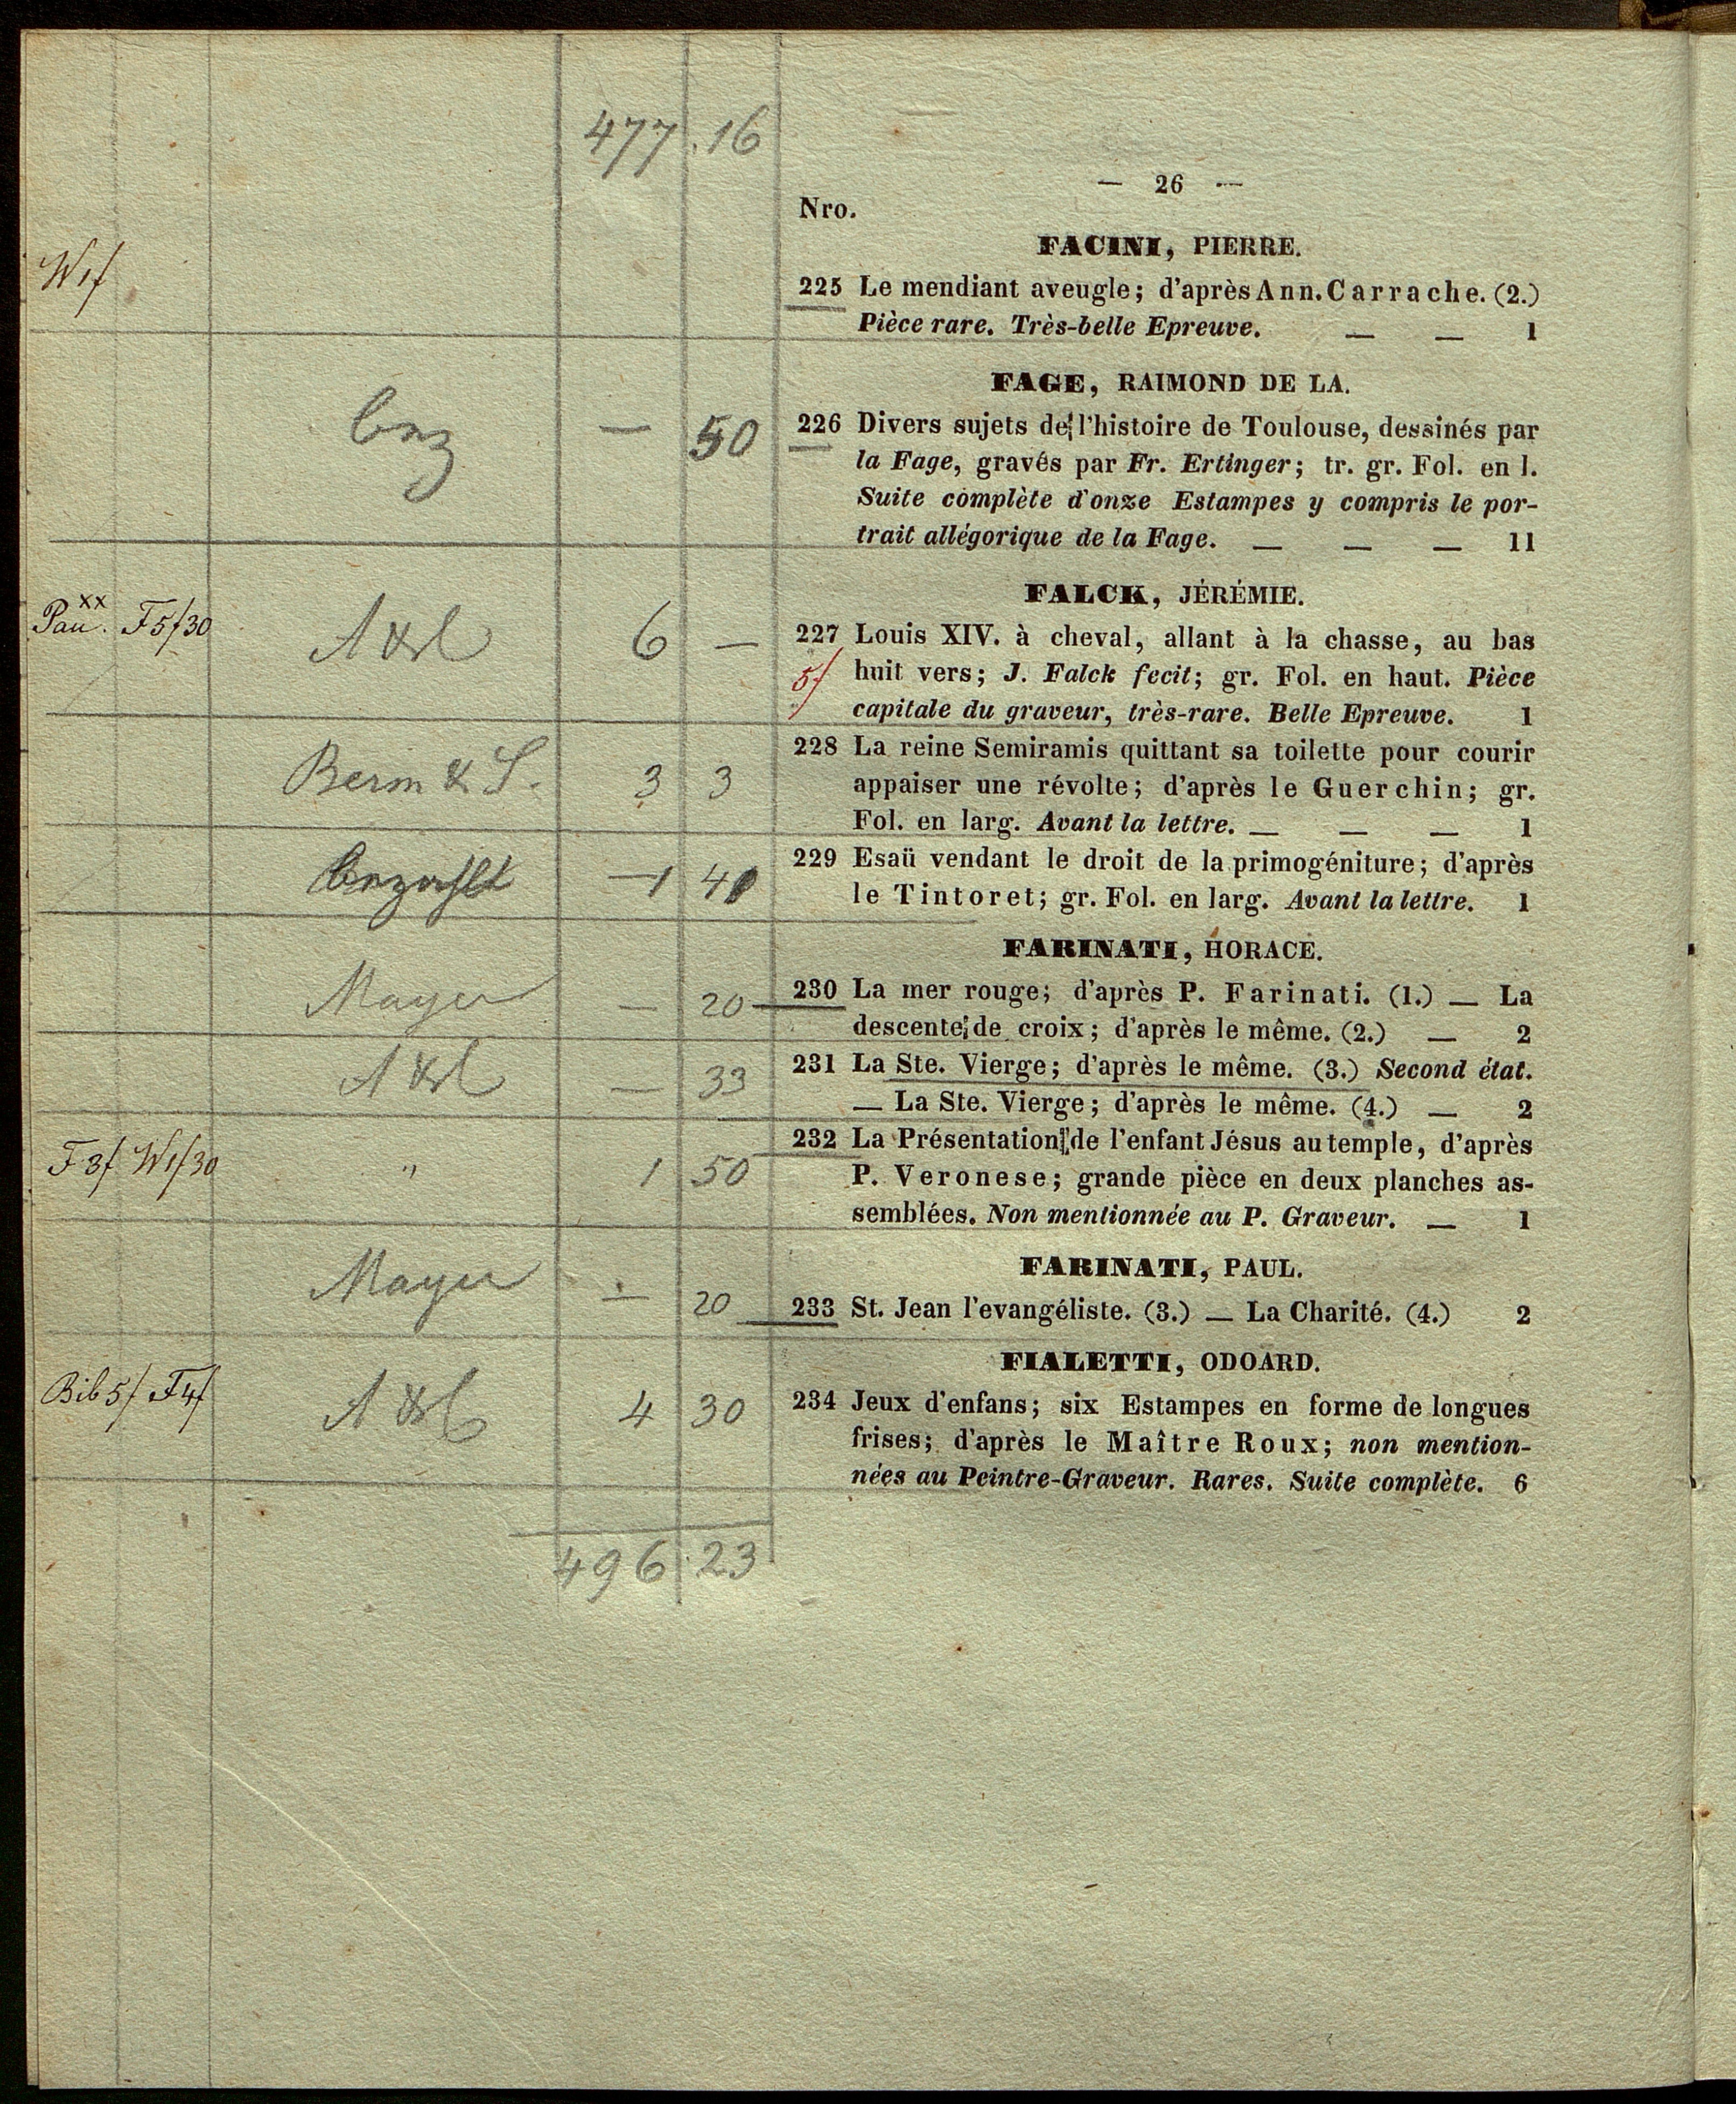 477 . 16
— 26 —
Nro.
FACINI, PIERRE.
W1f
225 Le mendiant aveugle; d'après Ann. Carrache. (2.)
Pièce rare. Très-belle Epreuve. — — 1
FAGE, RAIMOND DE LA.
— 50
226 Divers sujets de l'histoire de Toulouse, dessinés par
la Fage, gravés par Fr. Ertinger; tr. gr. Fol. en l.
Suite complète d'onze Estampes y compris le por-
trait allégorique de la Fage. — — — 11
FALCK, JÉRÉMIE.
xx
Pau. F5f30 6 —
227 Louis XIV. à cheval, allant à la chasse, au bas
5f huit vers; J. Falck fecit; gr. Fol. en haut. Pièce
capitale du graveur, très-rare. Belle Epreuve. 1
Berm & S. 3 3
228 La reine Semiramis quittant sa toilette pour courir
appaiser une révolte; d'après le Guerchin; gr.
Fol. en larg. Avant la lettre. — — — 1
229 Esaü vendant le droit de la primogéniture; d'après
le Tintoret; gr. Fol. en larg. Avant la lettre. 1
FARINATI, HORACE.
Mayer — 20
230 La mer rouge; d'après P. Farinati. (1.) — La
descente de croix; d'après le même. (2.) — 2
— 33
231 La Ste. Vierge; d'après le même. (3.) Second état.
— La Ste. Vierge; d'après le même. (4.) — 2
F3f W1f30 " 1 50
232 La Présentation de l'enfant Jésus au temple, d'après
P. Veronese; grande pièce en deux planches as-
semblées. Non mentionnée au P. Graveur. — 1
FARINATI, PAUL.
Mayer — 20
233 St. Jean l'evangéliste. (3.) — La Charité. (4.) 2
FIALETTI, ODOARD.
Bib 5f F4f 4 30
234 Jeux d'enfans; six Estampes en forme de longues
frises; d'après le Maître Roux; non mention-
nées au Peintre-Graveur. Rares. Suite complète. 6
496 . 23